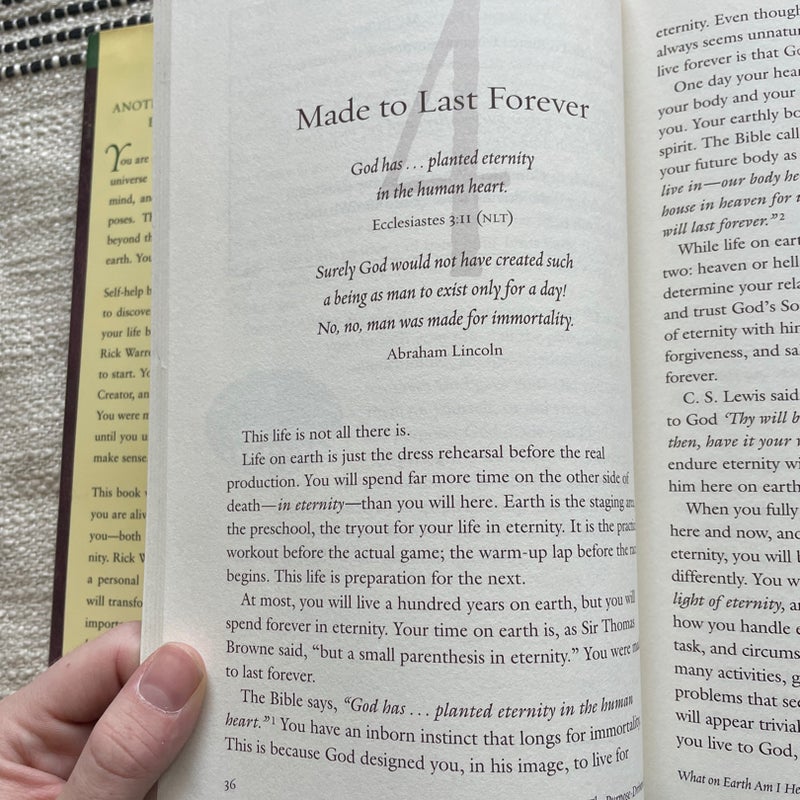 ANOT
You are
universe
mind, an
poses. Th
beyond th
earth. You
Self-help b
to discove
your life b
Rick Warre
to start. Yo
Creator, an
You were m
until you u
make sense
This book
you are aliv
you—both
nity. Rick W
a personal
will transfo
importa
4
Made to Last Forever
God has . . . planted eternity
in the human heart.
Ecclesiastes 3:11 (NLT)
Surely God would not have created such
a being as man to exist only for a day!
No, no, man was made for immortality.
Abraham Lincoln
This life is not all there is.
Life on earth is just the dress rehearsal before the real
production. You will spend far more time on the other side of
death—in eternity—than you will here. Earth is the staging area,
the preschool, the tryout for your life in eternity. It is the practice
workout before the actual game; the warm-up lap before the race
begins. This life is preparation for the next.
At most, you will live a hundred years on earth, but you will
spend forever in eternity. Your time on earth is, as Sir Thomas
Browne said, “but a small parenthesis in eternity.” You were made
to last forever.
The Bible says, “God has . . . planted eternity in the human
heart.”1 You have an inborn instinct that longs for immortality.
This is because God designed you, in his image, to live for
36
eternity. Even though
always seems unnatur
live forever is that Go
One day your hear
your body and your
you. Your earthly bo
spirit. The Bible call
your future body as
live in—our body he
house in heaven for
will last forever.”2
While life on eart
two: heaven or hell
determine your rela
and trust God's So
of eternity with him
forgiveness, and sa
forever.
C. S. Lewis said
to God ‘Thy will b
then, have it your
endure eternity wi
him here on earth
When you fully
here and now, and
eternity, you will b
differently. You w
light of eternity, a
how you handle e
task, and circums
many activities, g
problems that see
will appear trivial
you live to God,
What on Earth Am I He
Purpose-Driven